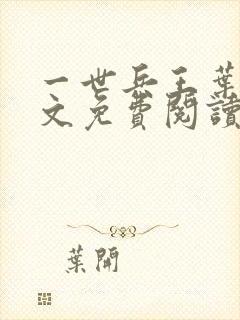 一世兵王葉
文免費閱讀
葉開